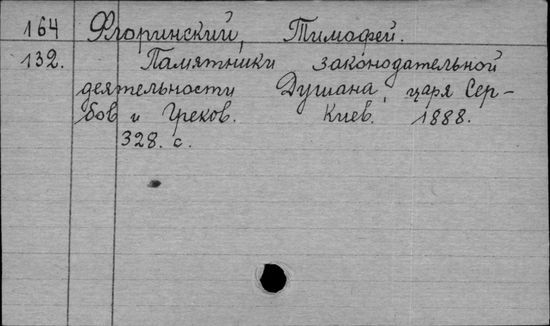 164 Флоринский, Тимофей.
132. Памятники законодательной
деятельности Душана, царя Сер-
бов и Греков. Киев. 1888.
328. с.